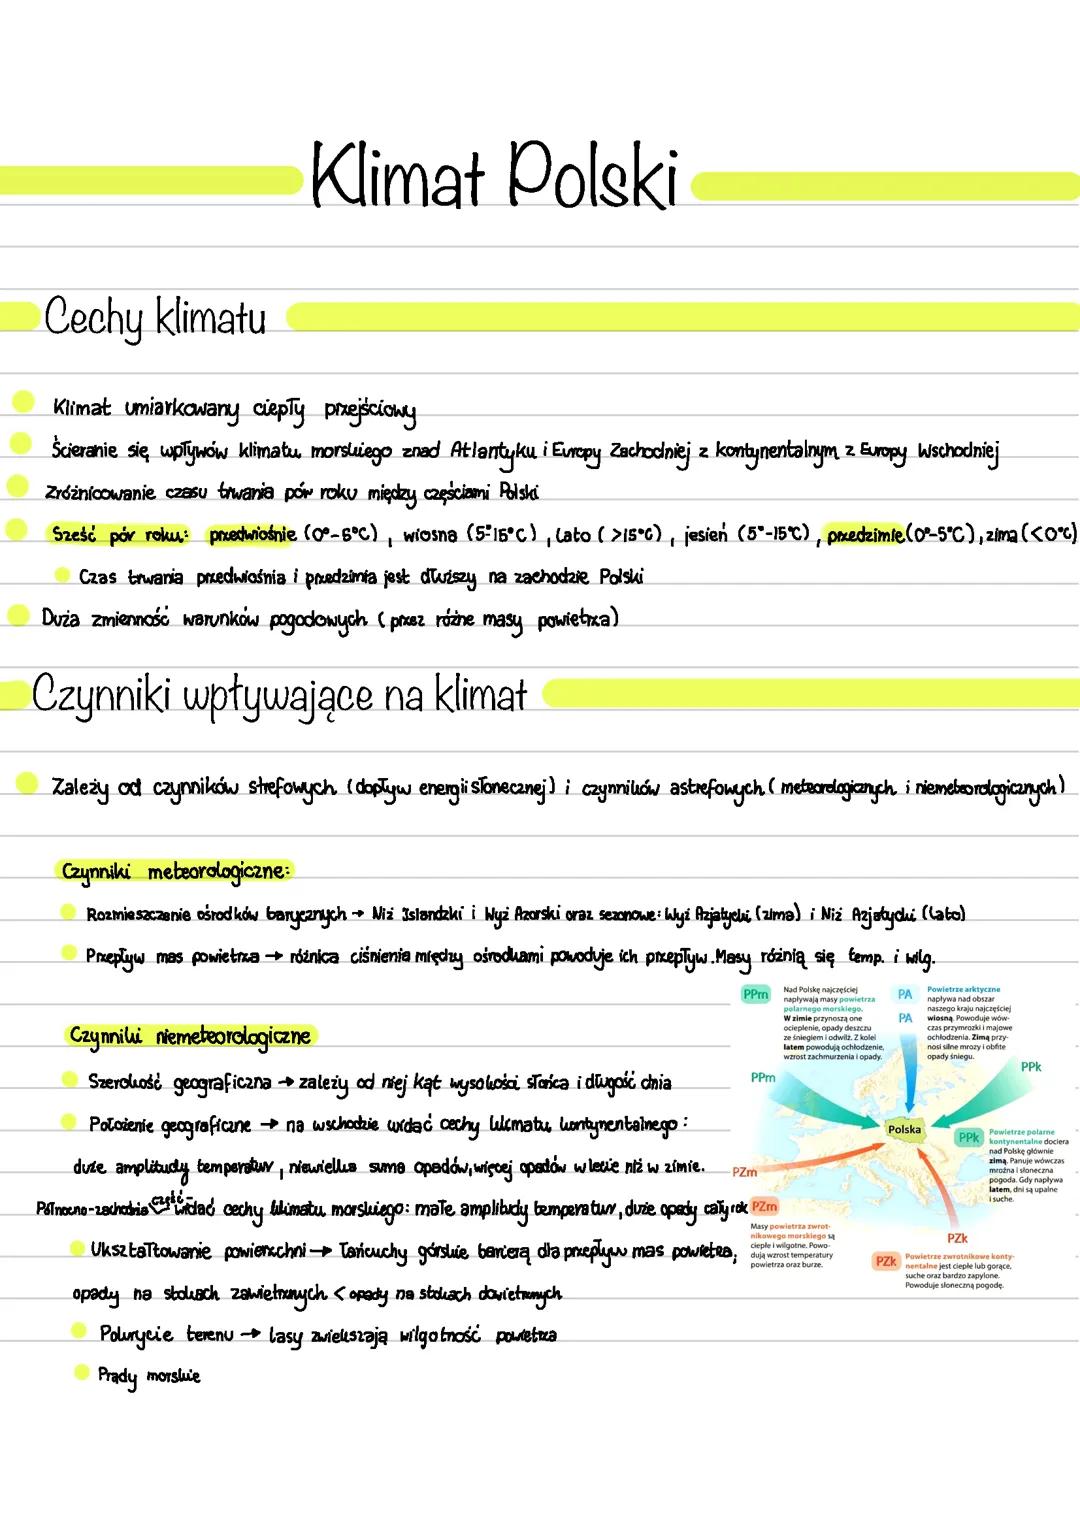 Klimat Polski
Cechy klimatu
Klimat umiarkowany ciepły przejściowy
Ścieranie się wpływów klimatu morskiego znad Atlantyku i Europy Zachodniej z kontynentalnym z Europy Wschodniej
Zróżnicowanie czasu trwania pór roku między częściami Polski
Sześć pór roku: przedwiośnie (0°-5°C), wiosna (5°-15°C), lato (>15°C), jesień (5°-15°C), przedzimie (0°-5°C), zima (<0°C)
Czas trwania przedwiośnia i przedzimia jest dłuższy na zachodzie Polski
Duża zmienność warunków pogodowych (przez różne masy powietrza)
Czynniki wpływające na klimat
Zależy od czynników strefowych (dopływ energii słonecznej) i czynników astrefowych (meteorologicznych i niemeteorologicznych)
Czynniki meteorologiczne:
Rozmieszczenie ośrodków barycznych → Niż Islandzki i Wyż Azorski oraz sezonowe: Wyż Azjatycki (zima) i Niż Azjatycki (lato)
Przepływ mas powietrza → różnica ciśnienia między ośrodkami powoduje ich przepływ. Masy różnią się temp. i wilg.
Czynniki niemeteorologiczne
Szerokość geograficzna → zależy od niej kąt wysokości słońca i długość dnia
Położenie geograficzne → na wschodzie widać cechy klimatu kontynentalnego:
duże amplitudy temperatur, niewielka suma opadów, więcej opadów w lecie niż w zimie.
Północno-zachodnia część - widać cechy klimatu morskiego: małe amplitudy temperatur, duże opady cały rok
Ukształtowanie powierzchni → Łańcuchy górskie barierą dla przepływu mas powietrza,
opady na stokach zawietrznych < opady na stokach dowietrznych
Pokrycie terenu → lasy zwiekszają wilgotność powietrza
Prądy morskie
PPm
Nad Polskę najczęściej
napływają masy powietrza
polarnego morskiego.
W zimie przynoszą one
ocieplenie, opady deszczu
ze śniegiem i odwilż. Z kolei
latem powodują ochłodzenie,
wzrost zachmurzenia i opady.
PA
PA
Powietrze arktyczne
napływa nad obszar
naszego kraju najczęściej
wiosną. Powoduje wów-
czas przymrozki i majowe
ochłodzenia. Zimą przy-
nosi silne mrozy i obfite
opady śniegu.
PPm
PPk
Polska
PPk
Powietrze polarne
kontynentalne dociera
nad Polskę głównie
zimą. Panuje wówczas
mroźna i słoneczna
pogoda. Gdy napływa
latem, dni są upalne
i suche.
PZm
PZm
Masy powietrza zwrot-
nikowego morskiego są
ciepłe i wilgotne. Powo-
dują wzrost temperatury
powietrza oraz burze.
PZk
PZk
Powietrze zwrotnikowe konty-
nentalne jest ciepłe lub gorące,
suche oraz bardzo zapylone.
Powoduje słoneczną pogodę.